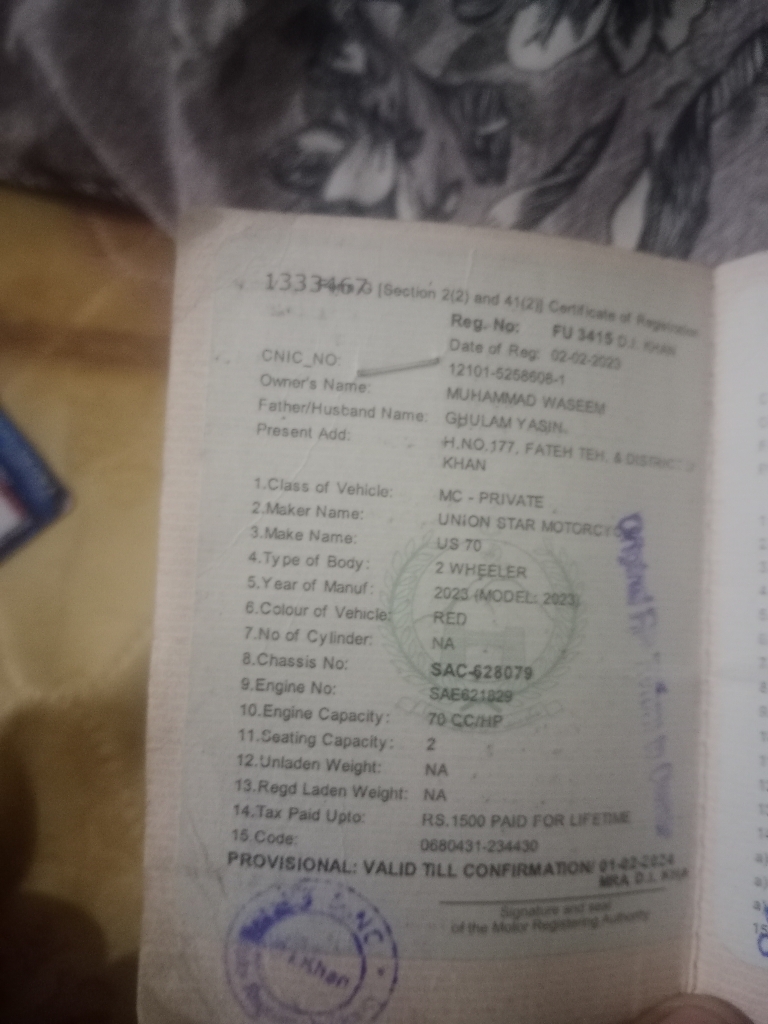 1333467 [Section 2(2) and 41(2)] Certificate of Registration
Reg. No: FU 3415 D.I. KHAN
Date of Reg: 02-02-2023
CNIC_NO: 12101-5258608-1
Owner's Name: MUHAMMAD WASEEM
Father/Husband Name: GHULAM YASIN.
Present Add: H.NO.177, FATEH TEH. & DISTRICT
KHAN
1.Class of Vehicle: MC - PRIVATE
2.Maker Name: UNION STAR MOTORCY
3.Make Name: US 70
4.Type of Body: 2 WHEELER
5.Year of Manuf: 2023 (MODEL: 2023)
6.Colour of Vehicle: RED
7.No of Cylinder: NA
8.Chassis No: SAC-628079
9.Engine No: SAE621829
10.Engine Capacity: 70 CC/HP
11.Seating Capacity: 2
12.Unladen Weight: NA
13.Regd Laden Weight: NA
14.Tax Paid Upto: RS.1500 PAID FOR LIFETIME
15.Code: 0680431-234430
PROVISIONAL: VALID TILL CONFIRMATION/ 01-02-2024
MRA D.I. KHA
Signature and seal
of the Motor Registering Authority
Original
Khan